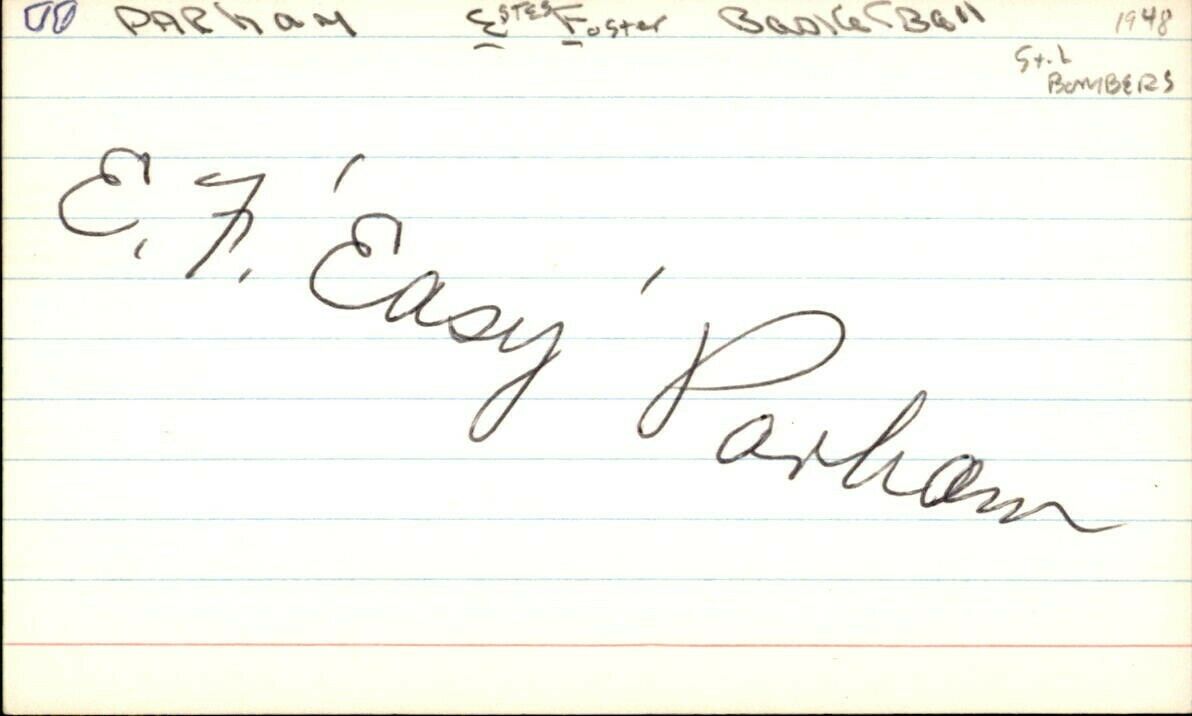 PARham Estes Foster BasketBall 1948
St. L
BOMBERS
E. F. 'Easy' Parham